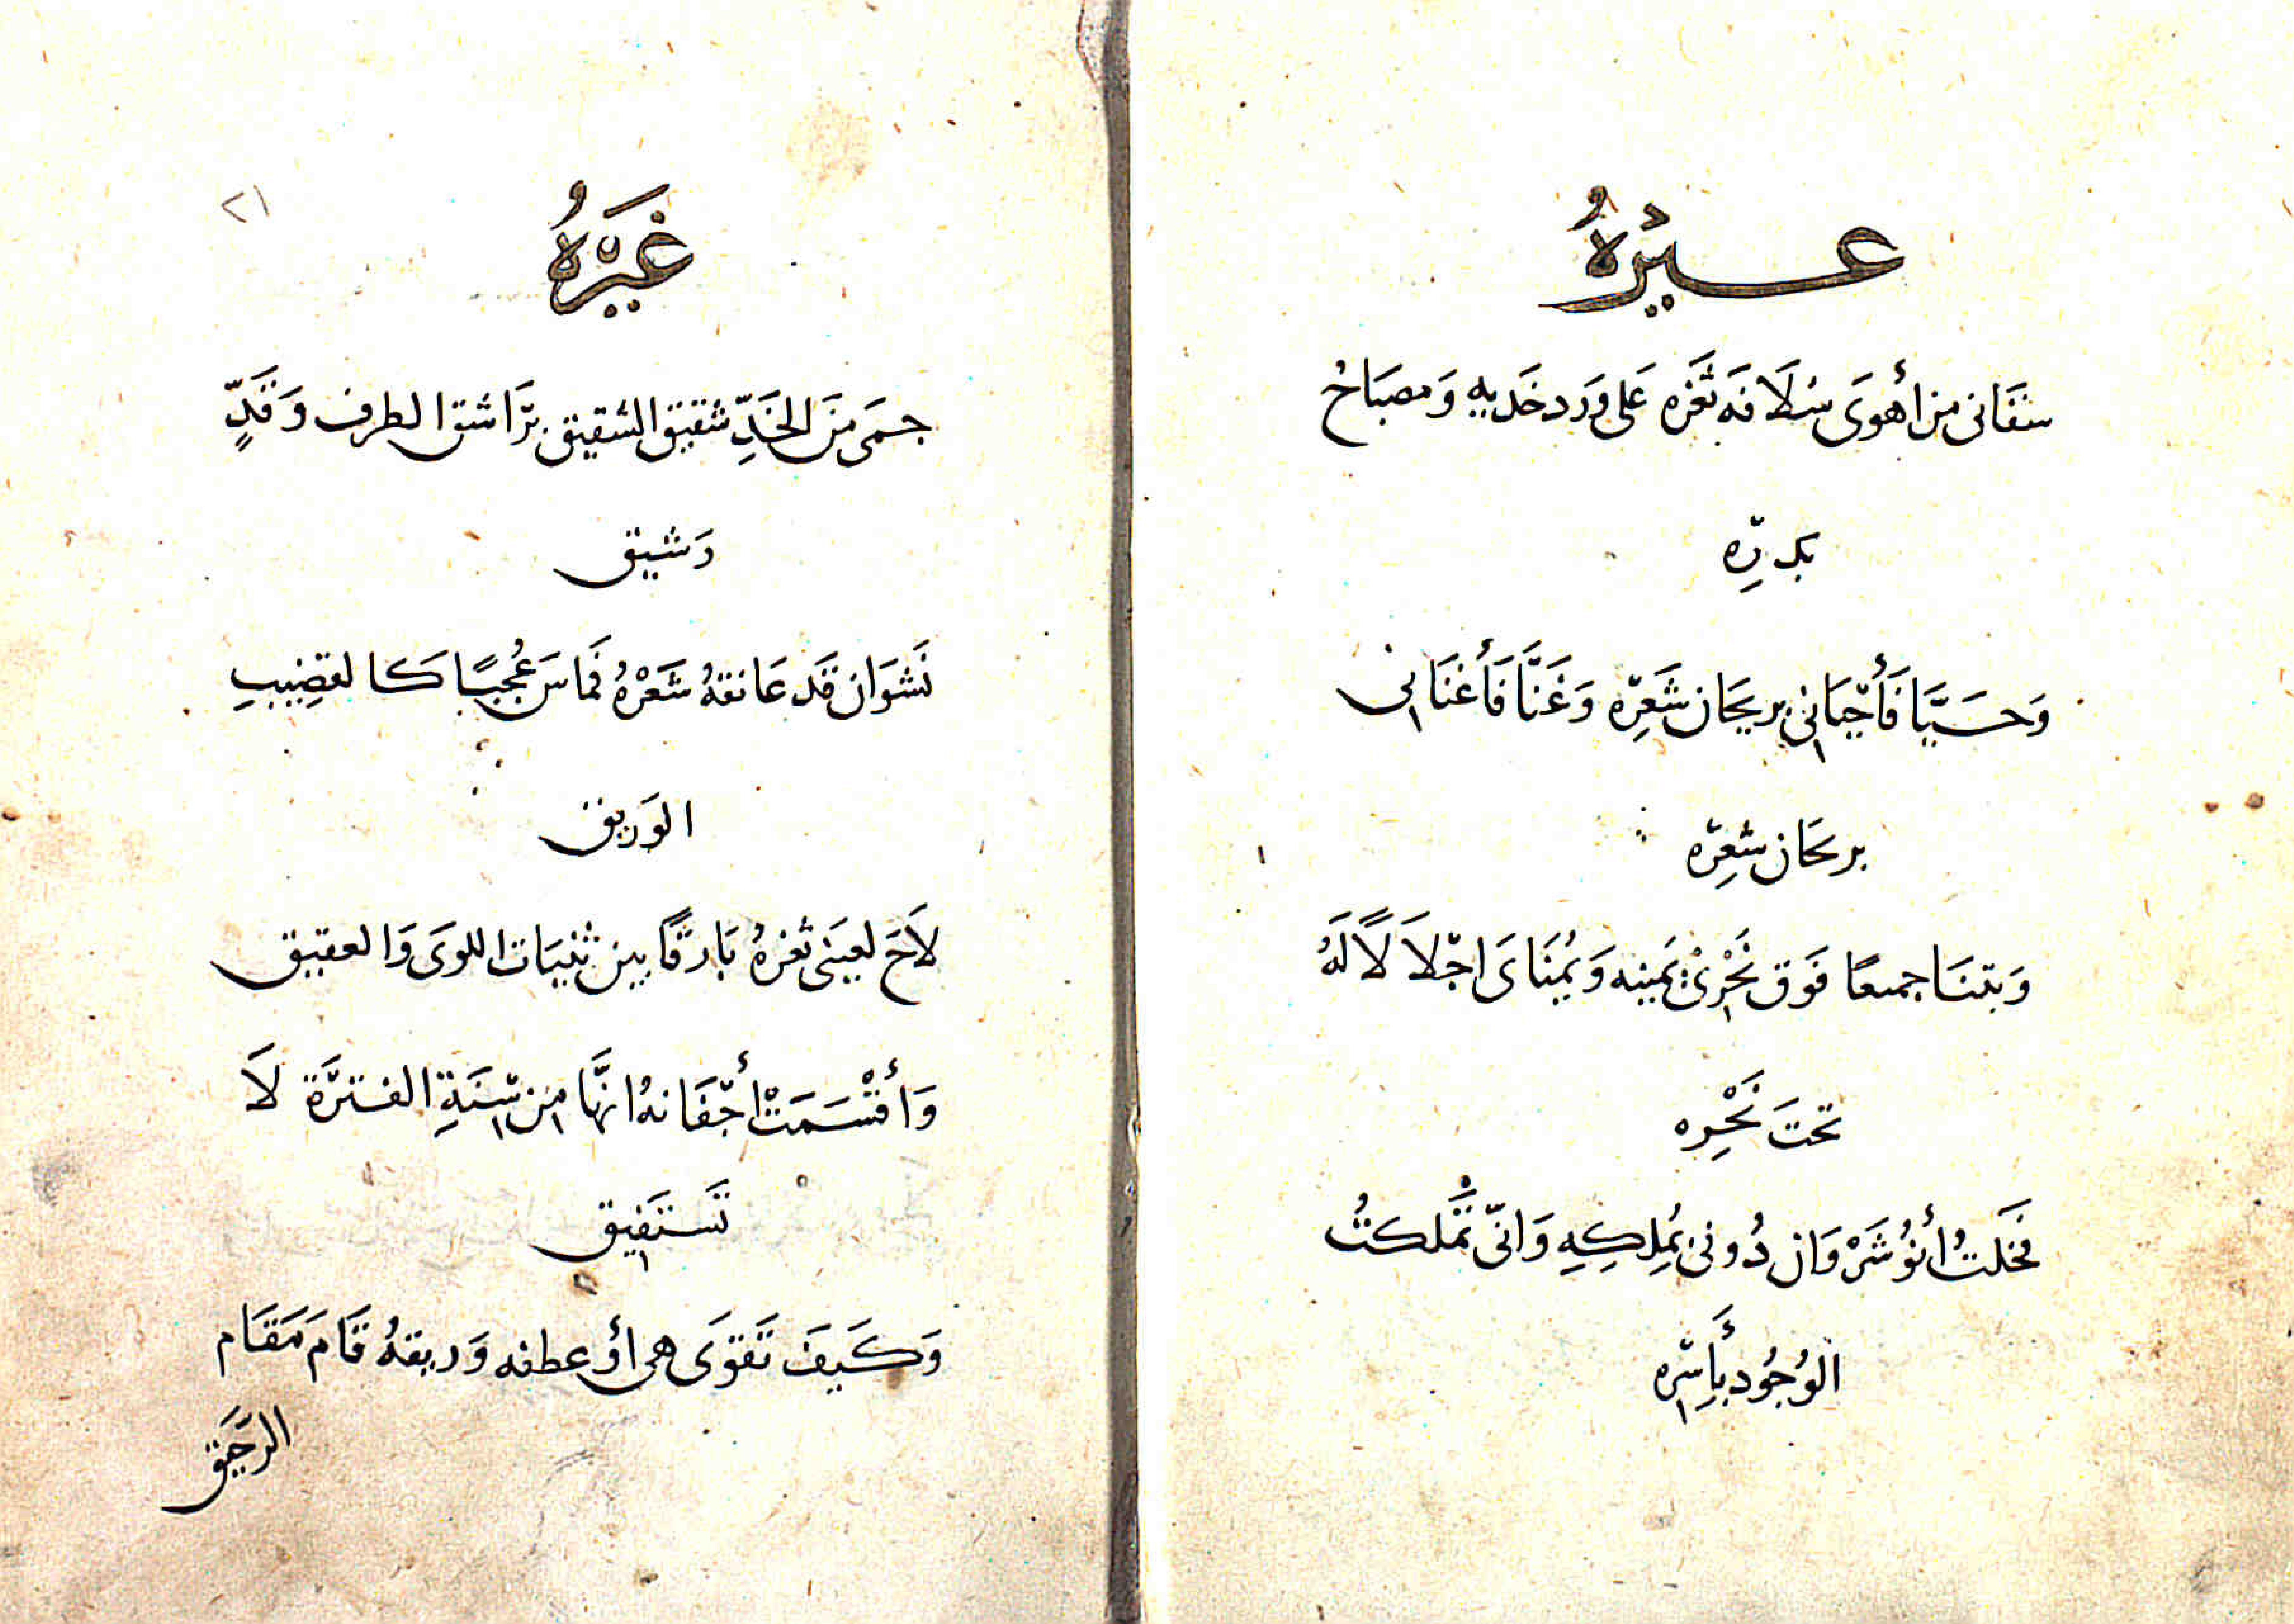 غيرُهُ
سقَانى من أهوَى سُلَافَه ثَغَره عَلى وَرَد خَديهِ وَمصبَاحُ
بَدرِه
وَحَيَّا فَأَحيَانِي بريحَان شَعَرِه وَغَنَّا فَأَغنَانِى
بريحَان شعِرّه
وَبتنَا جميعًا فَوَق نَحْرِىْ يَمينه وَيُمنَاىَ اجلَالًا لَهُ
تحتَ نَحْرِه
فخَلتُ أنوُشَرْوَان دُونى بمُلِكِهِ وَانّى تمْلكتُ
الوُجُود بِأَسِرّه
غَيرَهُ
٢١
حمَى مَنَ الخَدِّ شقيق الشقيق برَّاشق الطرف وَقَدٍّ
رَشيق
نَشوَان قَد عَانقهُ شَعَرْهُ فَماسَ عُجبًا كَالقضِيبِ
الوَريق
لَاحَ لعيَنى ثغرهُ بَارقًا بين ثنيَات اللوَى وَالعقيق
وَأَقْسَمَتْ أجّفَانهُ انهَّا مِن سِنَةِ الفترَّة لَا
تَستَفِيق
وَكَيفَ تَقوَى هى أو عطفه وَريقهُ قَامَ مَقَام
الرَحَيق